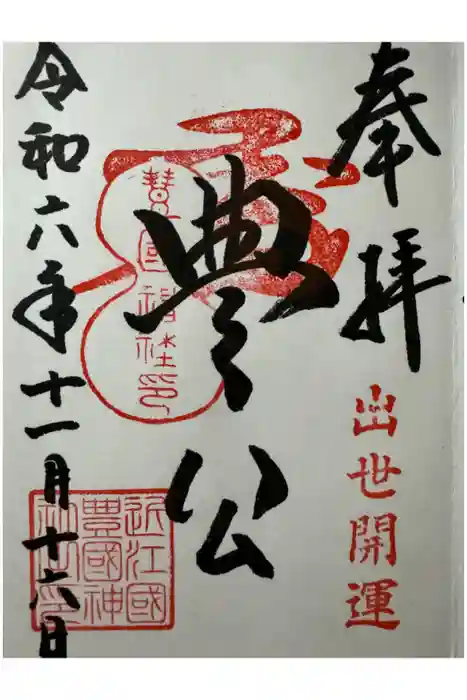 奉拝
出世開運
豊公
豊國神社印
近江國
豊國神
社印
令和六年十一月十六日